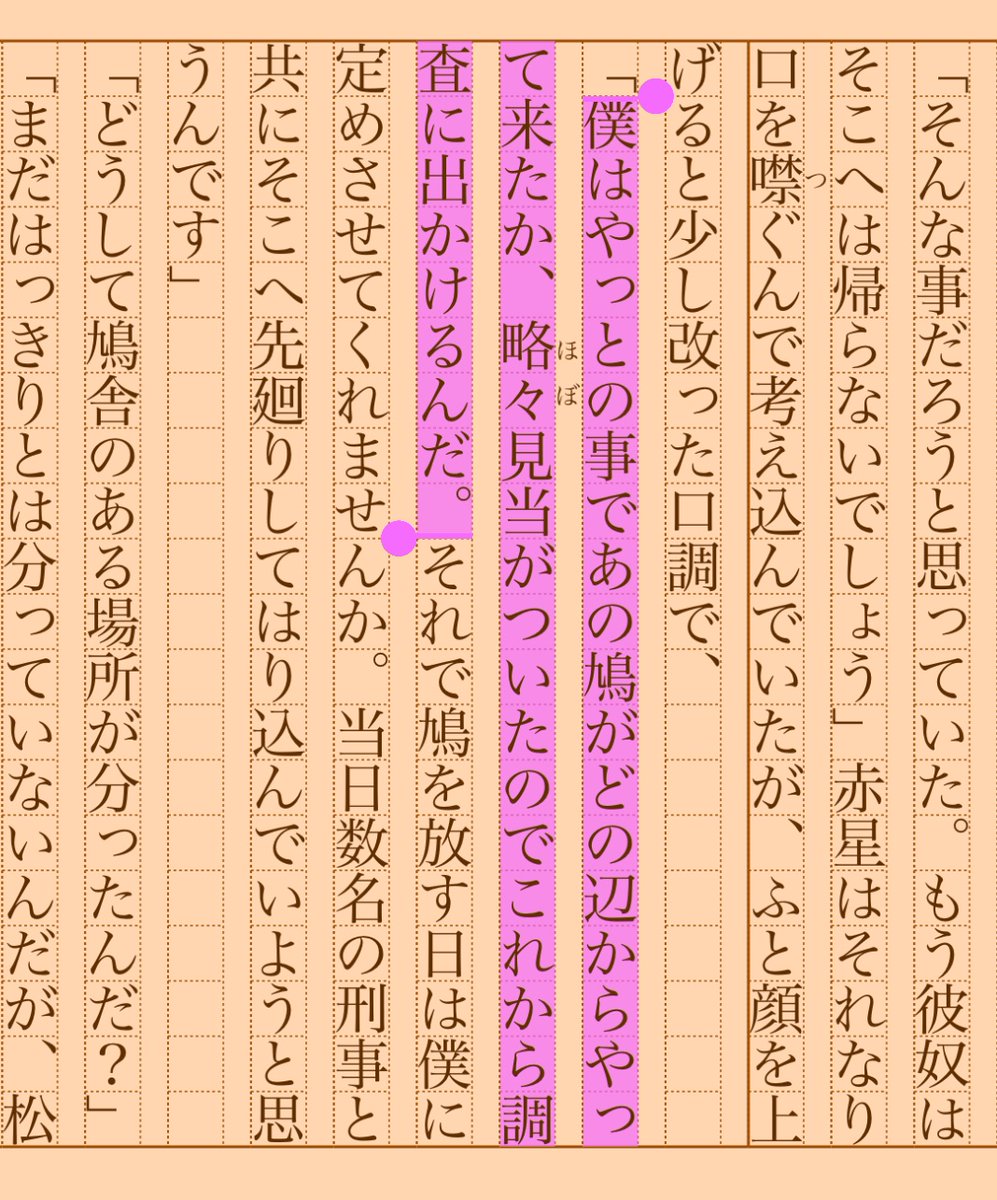 「そんな事だろうと思っていた。もう彼奴は
そこへは帰らないでしょう」赤星はそれなり
口を噤ぐんで考え込んでいたが、ふと顔を上
つ
げると少し改った口調で、
「僕はやっとの事であの鳩がどの辺からやっ
て来たか、略々見当がついたのでこれから調
ほぼ
査に出かけるんだ。それで鳩を放す日は僕に
定めさせてくれませんか。当日数名の刑事と
共にそこへ先廻りしてはり込んでいようと思
うんです」
「どうして鳩舎のある場所が分ったんだ？」
「まだはっきりとは分っていないんだが、松